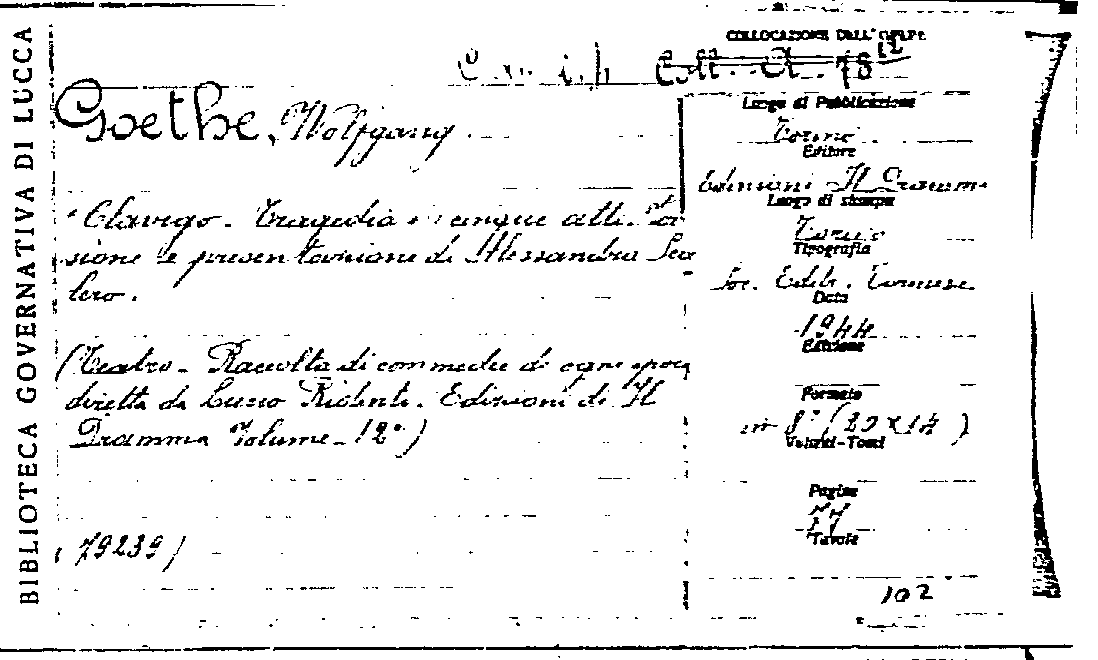 BIBLIOTECA GOVERNATIVA DI LUCCA
COLLOCAZIONE DELL'OPERA
Coll. A. 78 12
Goethe, Wolfgang
Clavigo. Tragedia in cinque atti. Ver
sione e presentazione di Alessandra Sca
lero.
(Teatro - Raccolta di commedie di ogni epoca
diretta da Lucio Ridenti. Edizioni di Il
Dramma Volume - 12°)
(79239)
Luogo di Pubblicazione
Torino
Editore
Edizioni Il Dramma
Luogo di stampa
Torino
Tipografia
Soc. Edit. Torinese
Data
1944
Edizione
Formato
in 8° (20 x 14)
Volumi-Tomi
Pagine
77
Tavole
102